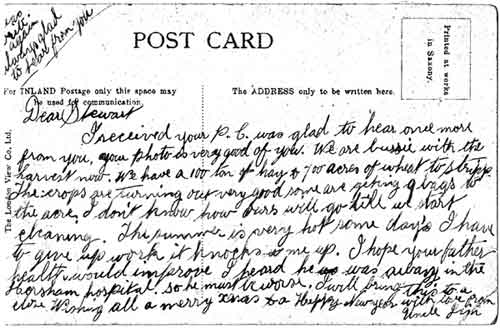 also
write
again
always glad
to hear from you
POST CARD
Printed at works
in Saxony.
For INLAND Postage only this space may
be used for communication.
The ADDRESS only to be written here.
The London View Co., Ltd.
Dear Stewart
I received your P.C. was glad to hear once more
from you, your photo is very good of you. We are bussie with the
harvest now. We have a 100 ton of hay & 700 acres of wheat to stripp
The crops are turning out very good some are geting 9 bags to
the acre, I don't know how ours will go till we start
cleaning. The summer is very hot some day's I have
to give up work it knocks me up. I hope your father
health would improve I heard he was away in the
Horsham hospital, so he must be worse. I will bring this to a
close Wishing all a merry xmas & a Happy New year with love from
Uncle Jim